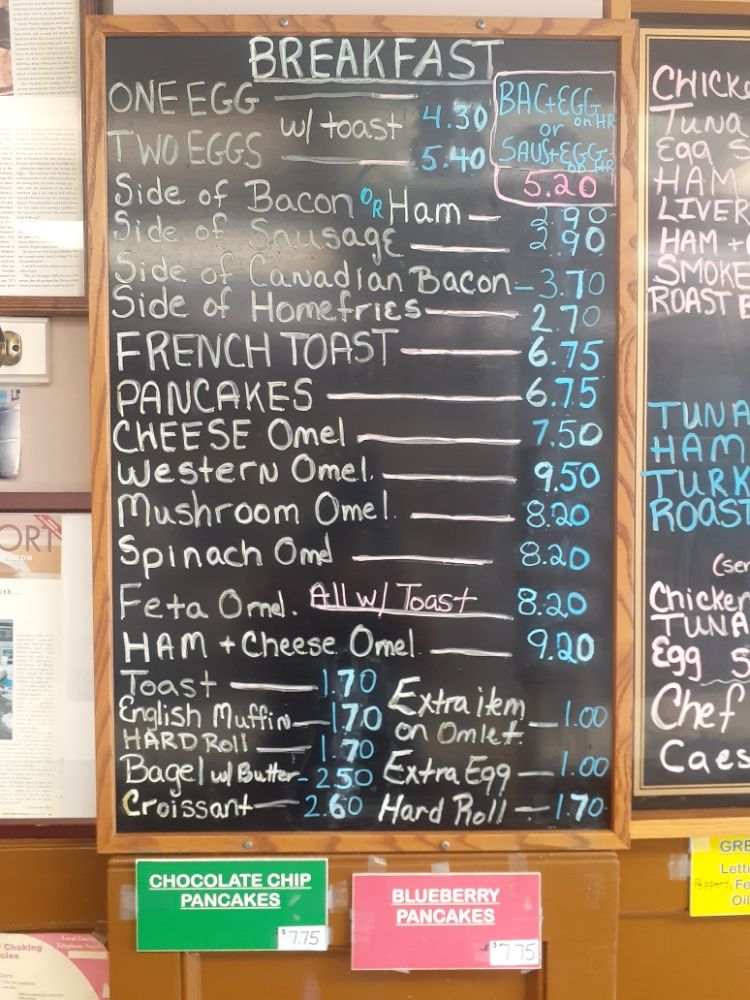 BREAKFAST
ONE EGG 4.30
w/ toast
TWO EGGS 5.40
BAC+EGG
on HR
or
SAUS+EGG
on HR
5.20
Side of Bacon OR Ham 2.90
Side of Sausage 2.90
Side of Canadian Bacon 3.70
Side of Homefries 2.70
FRENCH TOAST 6.75
PANCAKES 6.75
CHEESE Omel 7.50
Western Omel. 9.50
Mushroom Omel. 8.20
Spinach Omel 8.20
Feta Omel. All w/ Toast 8.20
HAM + Cheese Omel. 9.20
Toast 1.70
English Muffin 1.70
HARD Roll 1.70
Bagel w/ Butter 2.50
Croissant 2.60
Extra item
on Omlet. 1.00
Extra Egg 1.00
Hard Roll 1.70
CHOCOLATE CHIP
PANCAKES
$7.75
BLUEBERRY
PANCAKES
$7.75
TUNA
Egg S
HAM
LIVER
HAM +
SMOKE
ROAST
TUNA
HAM
TURK
ROAST
(ser
Chicken
TUNA
Egg S
Chef
Caes
GRE
Lettu
Peppers, Fe
Oil
ORT
Choking